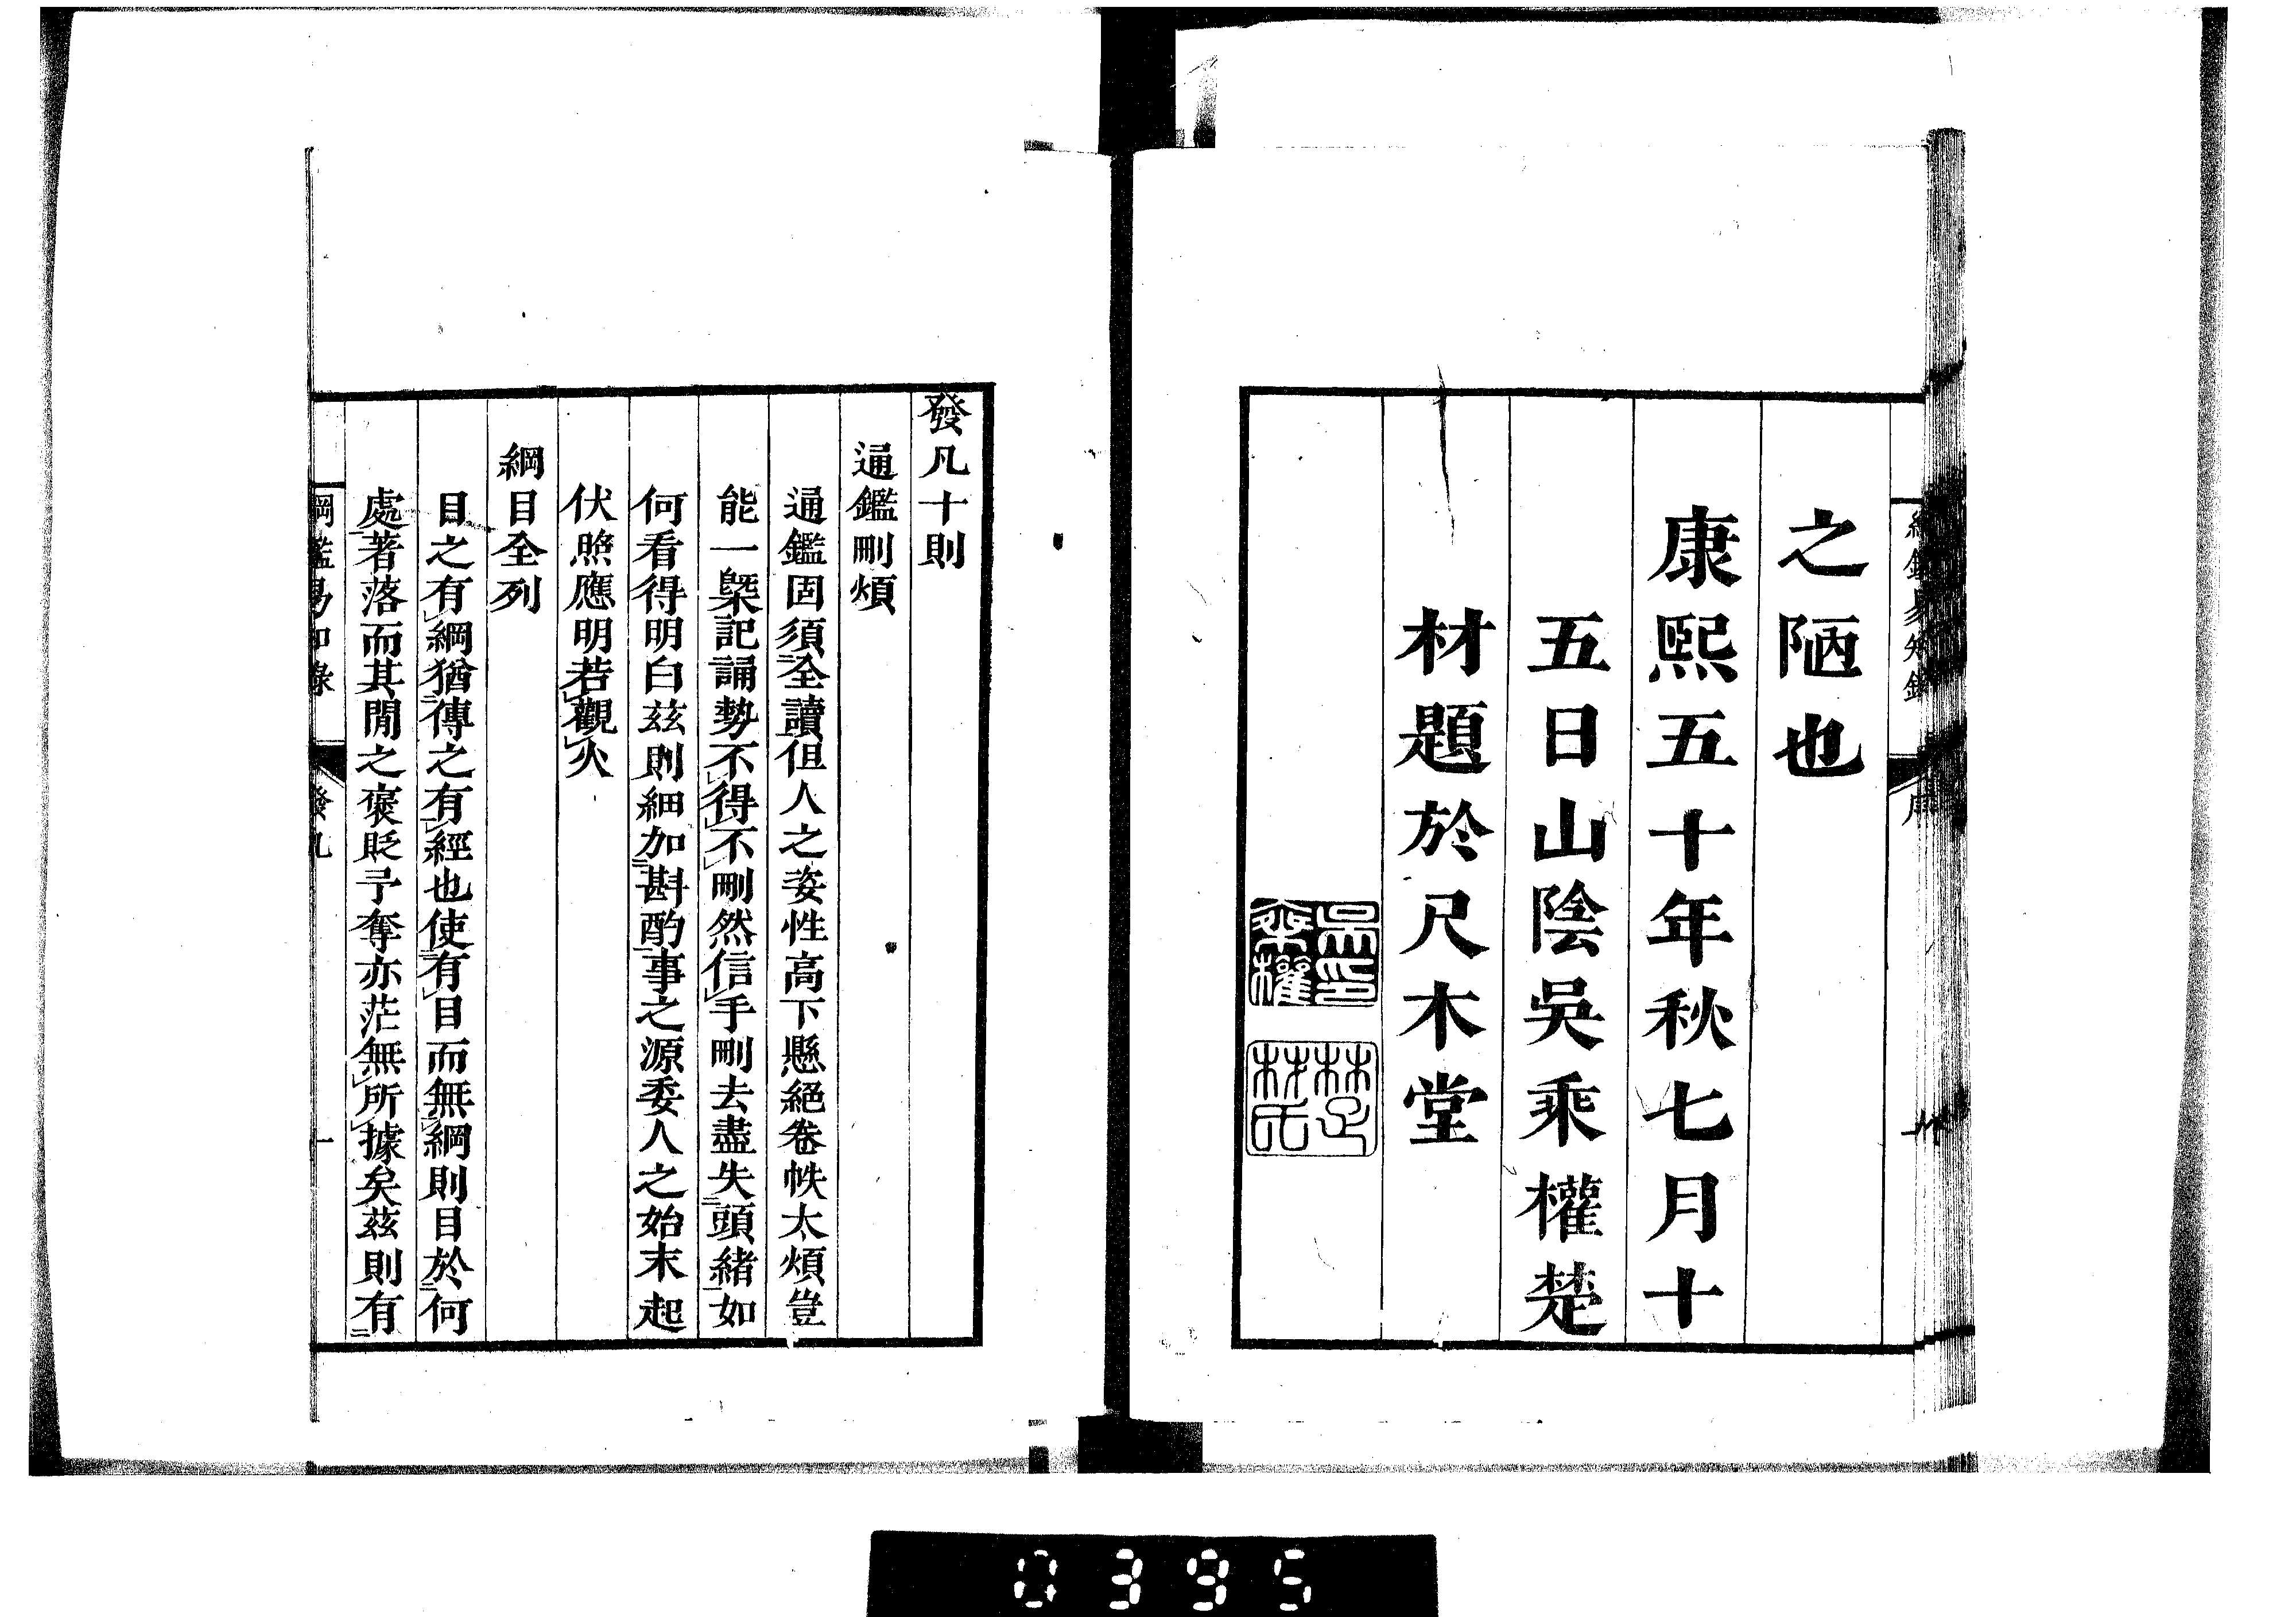 之陋也
康熙五十年秋七月十
五日山陰吳乘權楚
材題於尺木堂
吳乘權印
楚材氏
發凡十則
通鑑刪煩
通鑑固須全讀但人之姿性高下懸絕卷帙太煩豈
能一槩記誦勢不得不刪然信手刪去盡失頭緒如
何看得明白茲則細加斟酌事之源委人之始末起
伏照應明若觀火
綱目全列
目之有綱猶傳之有經也使有目而無綱則目於何
處著落而其閒之褒貶予奪亦茫無所據矣茲則有
綱鑑易知錄
發凡
一
0395